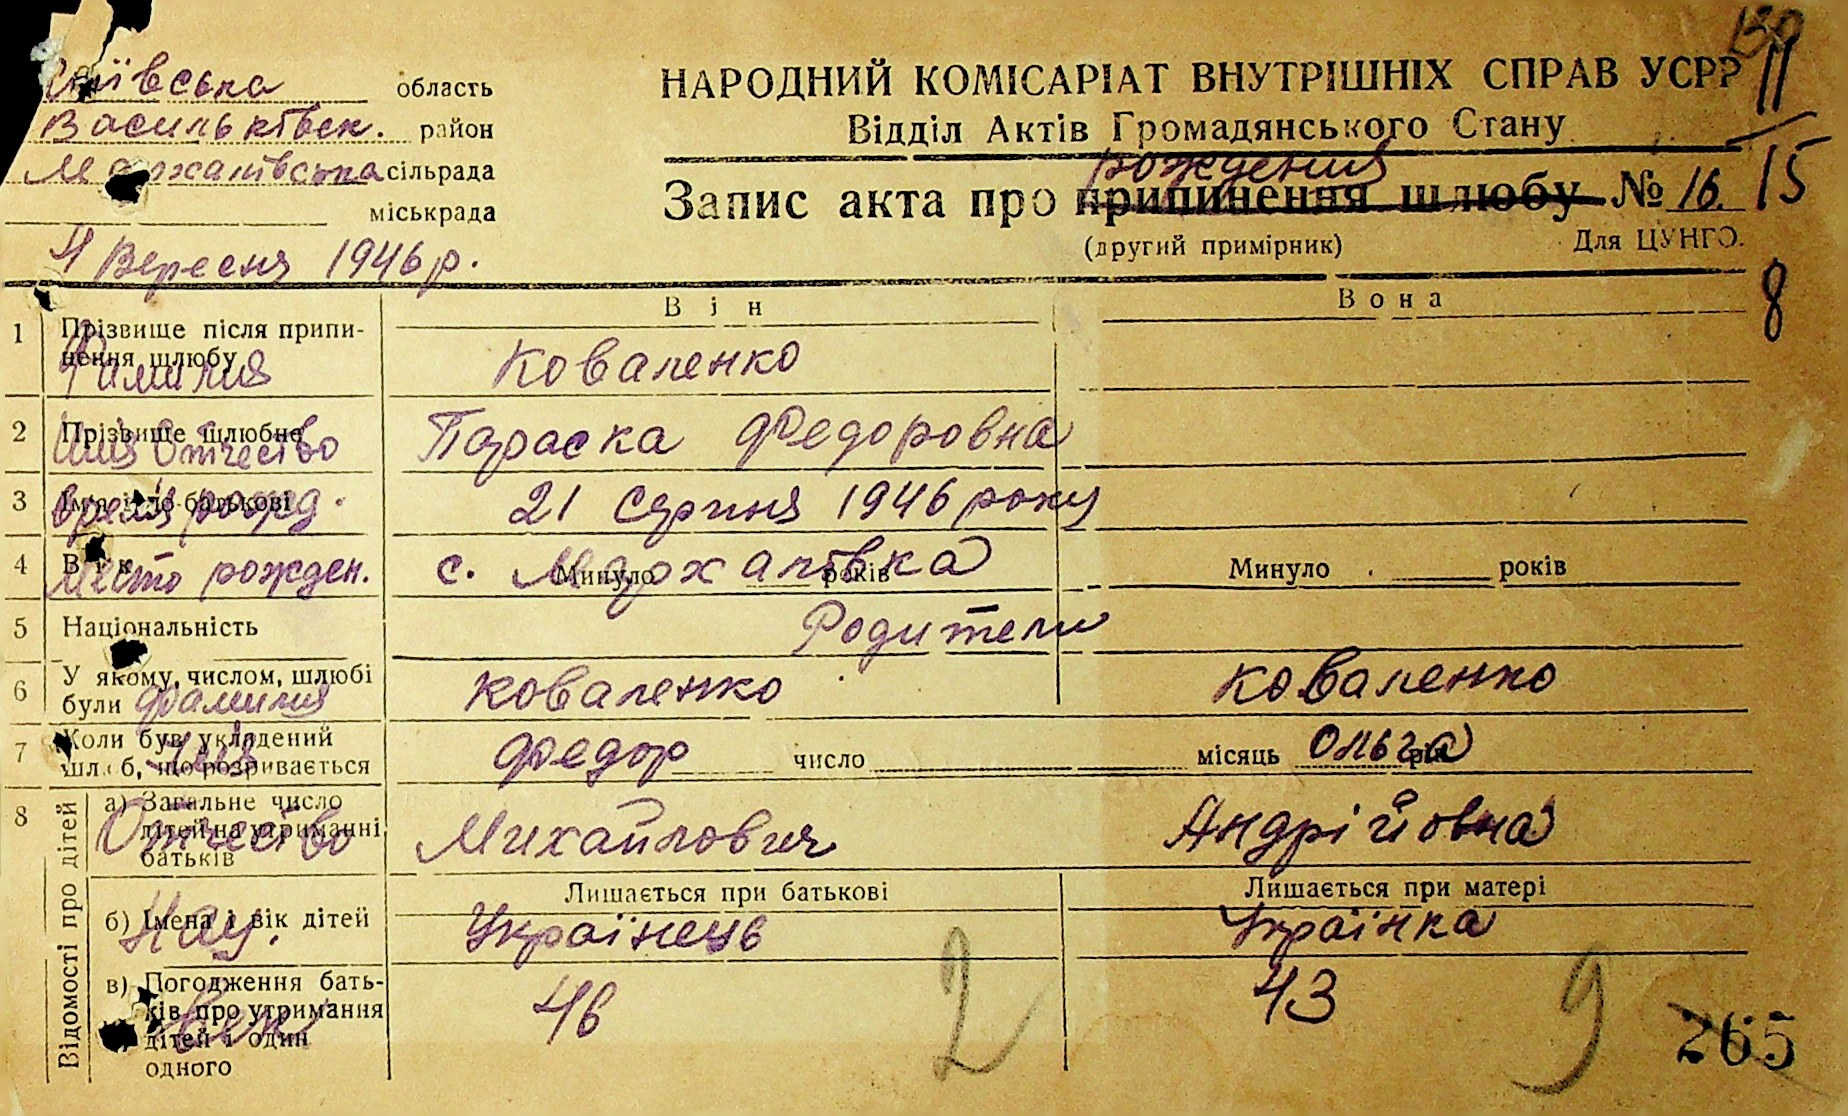 Київська область
Васильківск. район
Мархалівська сільрада
міськрада
4 Вересня 1946 р.
НАРОДНИЙ КОМІСАРІАТ ВНУТРІШНІХ СПРАВ УСРР
Відділ Актів Громадянського Стану
рождения
Запис акта про припинення шлюбу № 16.
(другий примірник) Для ЦУНГО.
11
15
8
Він Вона
1 Прізвище після припинення шлюбу
Фамилия Коваленко
2 Прізвище шлюбне
Имя Отчество Параска Федоровна
3 Ім'я і по батькові
Время рожд. 21 Серпня 1946 року
4 Вік Минуло років Минуло років
Место рожден. с. Мархалівка
5 Національність Родители
6 У якому, числом, шлюбі були
Фамилия Коваленко Коваленко
7 Коли був укладений шлюб, що розривається число місяць рік
Имя Федор Ольга
8 Відомості про дітей
а) Загальне число дітей на утриманні батьків
Отчество Михайлович Андрійовна
Лишається при батькові Лишається при матері
б) Імена і вік дітей
Нац. Українець Українка
в) Погодження батьків про утримання дітей і один одного
46 43
2 9
265